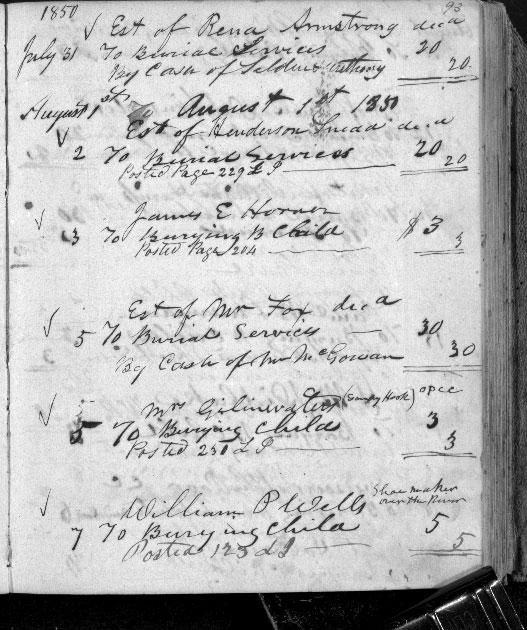 1850 93
Est of Rena Armstrong decd
July 31 To Burial Services 20
By Cash of Selden Anthony 20
August 1st August 1st 1850
Est of Henderson Snead decd
2 To Burial Services 20
Posted Page 229 L J 20
James E Horner
3 To Burying B Child $ 3
Posted Page 204 3
Est of Mr Fox decd
5 To Burial Services 30
By Cash of Mr McGowan 30
Mr (Sandy Hook) opee
5 To Burying Child 3
Posted 251 L J 3
William P Wells Shoe maker
over the River
7 To Burying Child 5
Posted 123 L J 5